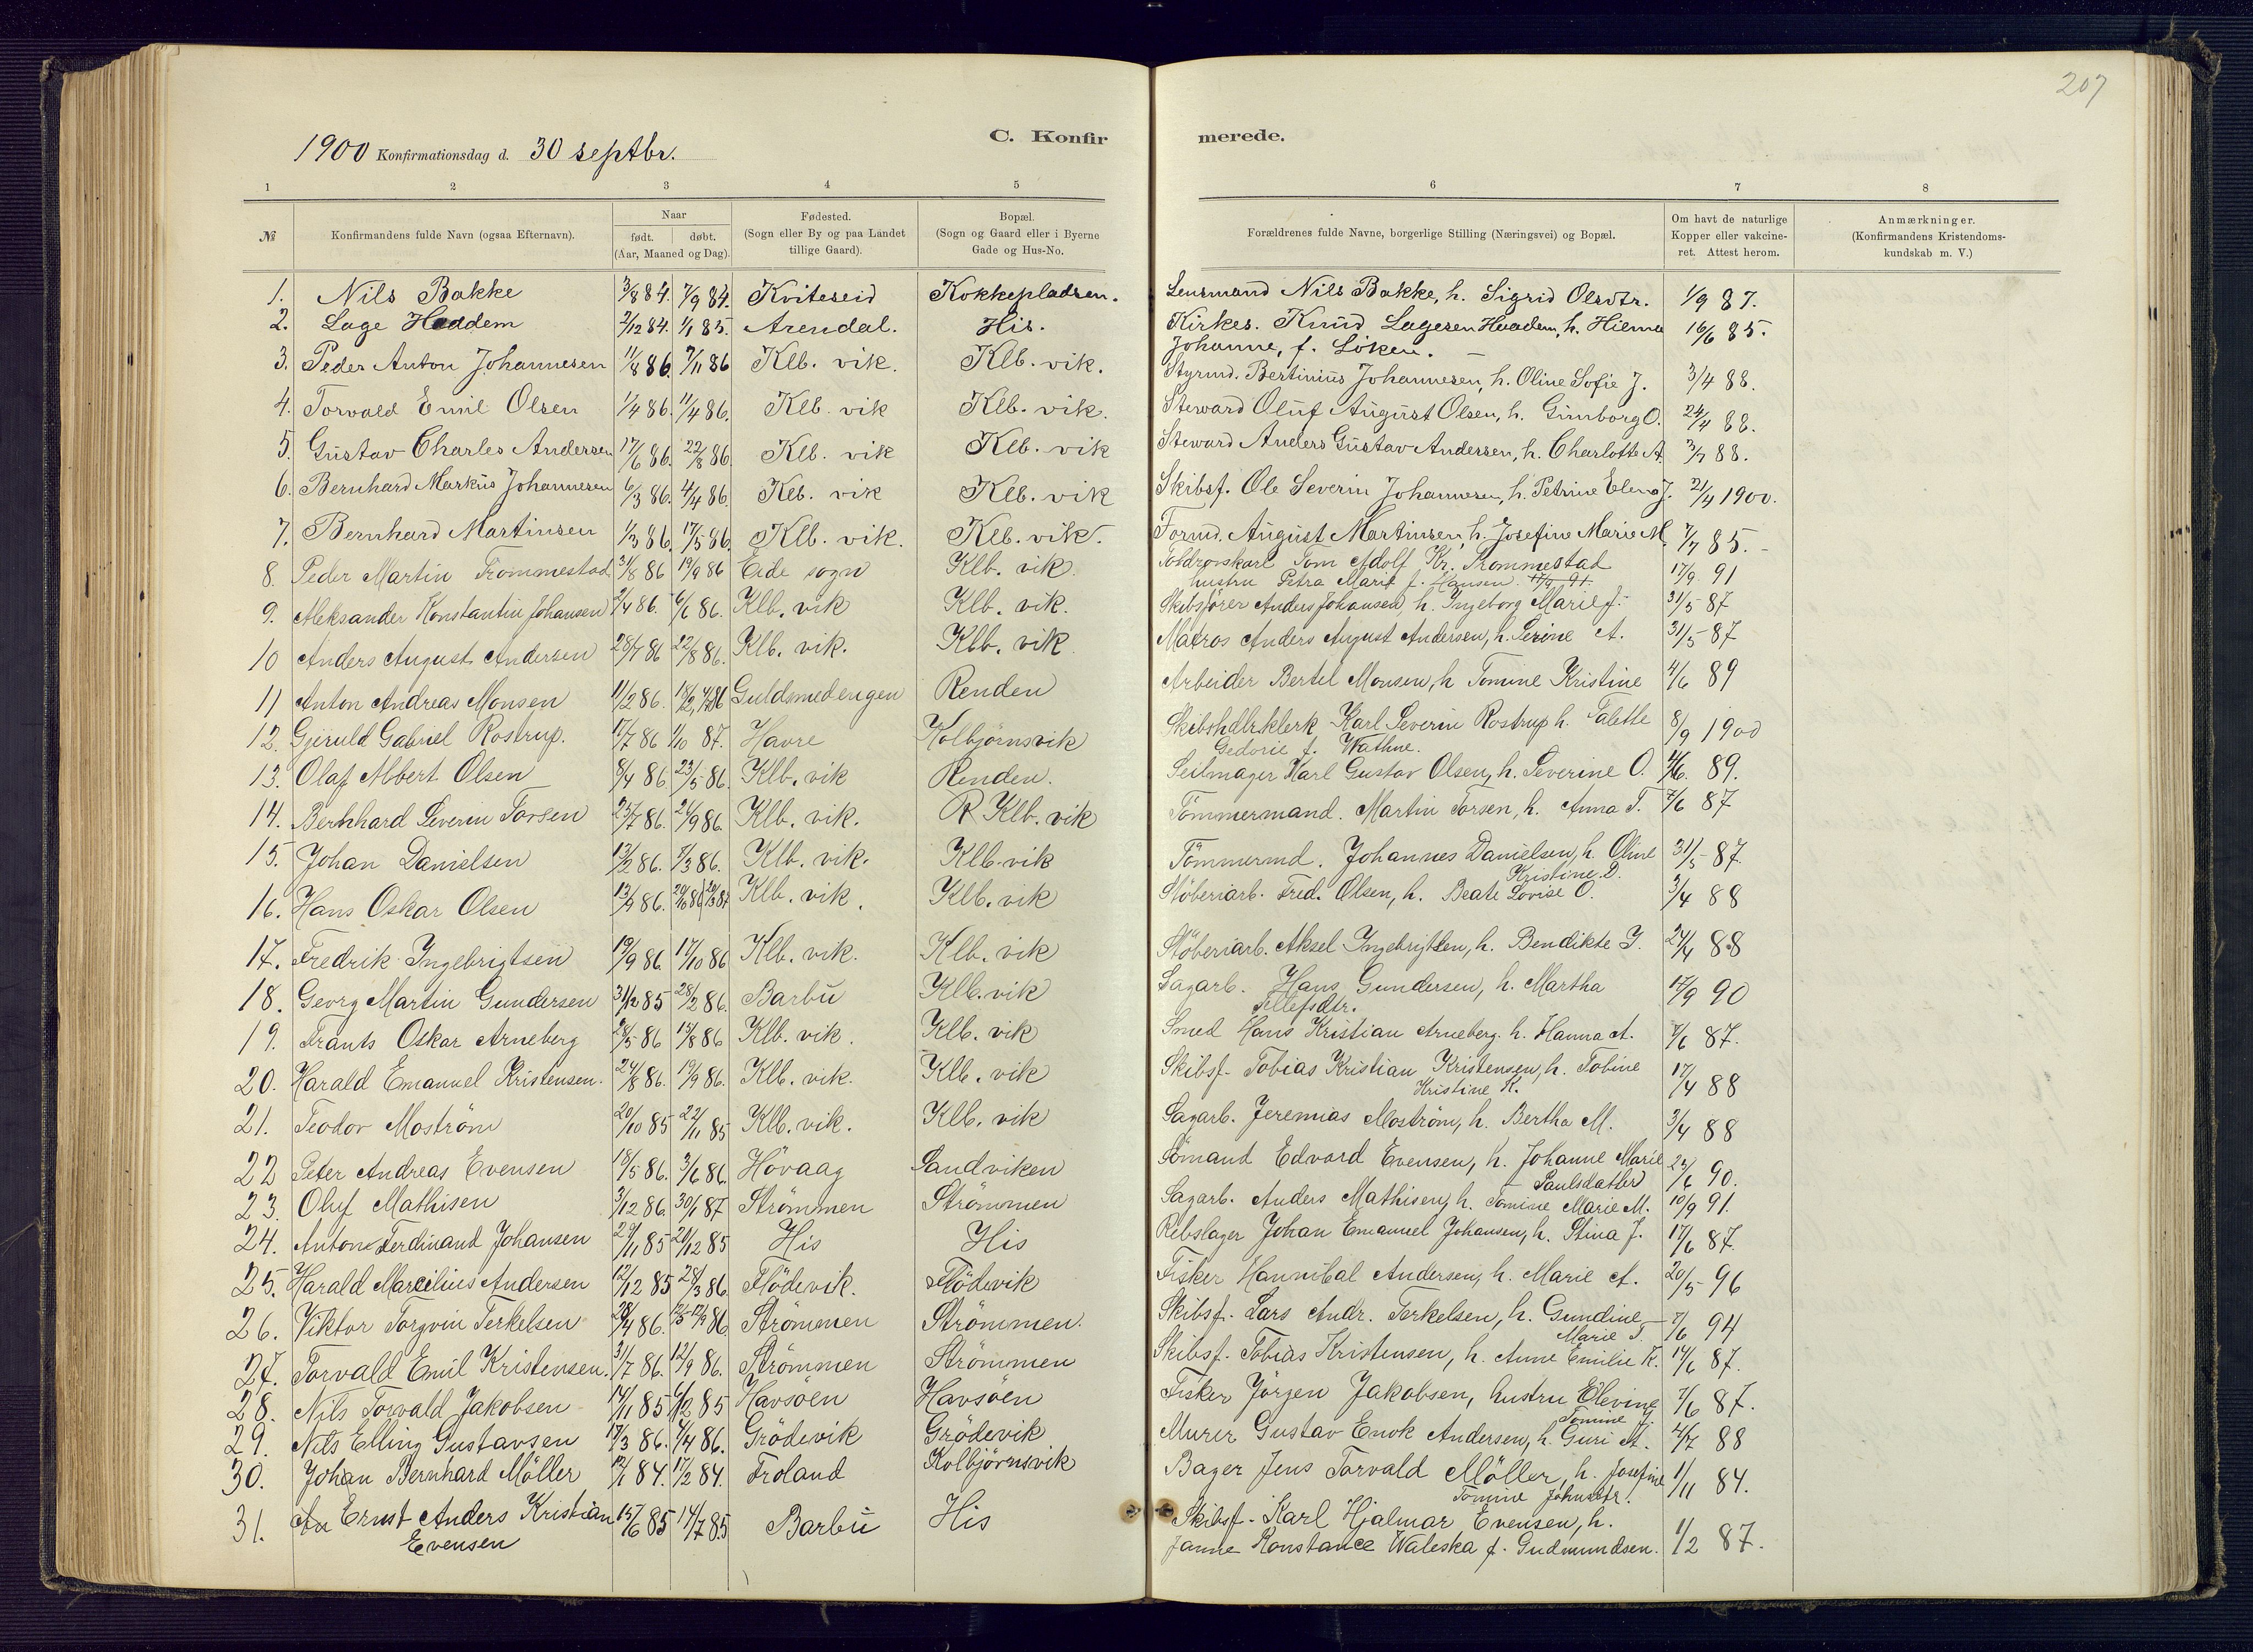 207
1900 Konfirmationsdag d. 30 septbr.
C. Konfirmerede.
1 2 3 4 5 6 7 8
№ Konfirmandens fulde Navn (ogsaa Efternavn). Naar født. døbt. (Aar, Maaned og Dag). Fødested. (Sogn eller By og paa Landet tillige Gaard). Bopæl. (Sogn og Gaard eller i Byerne Gade og Hus-No. Forældrenes fulde Navne, borgerlige Stilling (Næringsvei) og Bopæl. Om havt de naturlige Kopper eller vakcineret. Attest herom. Anmærkninger. (Konfirmandens Kristendomskundskab m. V.)
1. Nils Bakke 3/8 84. 7/9 84. Kviteseid Kokkepladsen. Lensmand Nils Bakke, h. Sigrid Olsdtr. 1/9 87.
2. Lage Haddem 2/12 84. 1/1 85. Arendal. His. Kirkes. Knud Lagesen Haadem, h. Hilma 16/6 85.
Johanne, f. Löken.
3. Peder Anton Johannesen 11/8 86. 7/11 86 Klb. vik. Klb. vik. Styrmd. Bertinius Johannesen, h. Oline Sofie J. 3/4 88.
4. Torvald Emil Olsen 1/4 86. 11/4 86. Klb. vik Klb. vik. Steward Oluf August Olsen, h. Gunborg O. 24/4 88.
5. Gustav Charles Andersen 17/6 86. 22/8 86. Klb. vik Klb. vik Steward Anders Gustav Andersen, h. Charlotte A. 3/7 88.
6. Bernhard Markus Johannesen 6/3 86. 4/4 86. Klb. vik Klb. vik Skibsf. Ole Severin Johannesen, h. Petrine Elena J. 21/4 1900.
7. Bernhard Martinsen 1/3 86. 17/5 86. Klb. vik. Klb. vik. Formd. August Martinsen, h. Josefine Marie M. 7/7 85.
8. Peder Martin Trommestad 31/8 86 19/9 86 Eide sogn Klb. vik. Toldropskarl Tom Adolf Kr. Trommestad 17/9 91
hustru Petra Marie f. Hansen. 17/9 91.
9. Aleksander Konstantin Johansen 2/4 86. 6/6 86. Klb. vik Klb. vik. Skibsförer Anders Johansen, h. Ingeborg Marie J. 31/5 87
10 Anders August Andersen 28/7 86 22/8 86. Klb. vik. Klb. vik Matros Anders August Andersen, h. Serine A. 31/5 87
11 Anton Andreas Monsen 11/2 86. Guldsmedengen Renden Arbeider Bertel Monsen, h Tomine Kristine 4/6 89
12. Gjeruld Gabriel Rostrup. 17/7 86 1/10 87. Havre Kolbjörnsvik Skibshdlrklerk Karl Severin Rostrup h. Talette 8/9 1900
Gedorie f. Wathne.
13. Olaf Albert Olsen 8/4 86 23/5 86. Klb. vik Renden. Seilmager Karl Gustav Olsen, h. Severine O. 4/6. 89.
14. Bernhard Severin Torsen 25/7 86. 26/9 86. Klb. vik. R Klb. vik Tömmermand. Martin Torsen, h. Anna T. 7/6 87
15. Johan Danielsen 12/2 86. 7/3 86. Klb. vik. Klb. vik Tömmermd. Johannes Danielsen, h. Oline 31/5 87.
Kristine D.
16. Hans Oskar Olsen 13/9 86. Klb. vik. Klb. vik Stöberiarb. Fred. Olsen, h. Beate Lovise O. 3/4 88
17. Fredrik Ingebrigtsen 19/9 86. 17/10 86 Klb. vik. Klb. vik Stöberiarb. Aksel Ingebrigtsen, h. Bendikte I. 24/4 88
18. Georg Martin Gundersen 31/12 85 28/2 86. Barbu Klb. vik Sagarb. Hans Gundersen, h. Martha 17/9 90
Tellefsdtr.
19. Frants Oskar Arneberg 28/5 86 15/8 86 Klb. vik. Klb. vik Smed Hans Kristian Arneberg. h. Hanna A. 7/6 87.
20. Harald Emanuel Kristensen. 24/8 86. 19/9 86. Klb. vik. Klb. vik Skibsf. Tobias Kristian Kristensen, h. Tobine 17/4 88
Kristine K.
21. Teodor Moström 20/10 85 22/11 85 Klb. vik. Klb. vik Sagarb. Jeremias Moström, h. Bertha M. 3/4 88
22 Peter Andreas Evensen 18/5 86. 3/6 86. Hövaag Sandviken Sömand Edvard Evensen, h. Johanne Marie 23/6 90.
Paulsdatter
23. Oluf Mathisen 3/12 86. 30/1 87 Strömmen Strömmen Sagarb. Anders Mathisen, h. Tomine Marie M. 10/9 91.
24. Anton Ferdinand Johansen 29/11 85 26/12 85 His His Rebslager Johan Emanuel Johansen, h. Stina J. 17/6 87.
25. Harald Marcilius Andersen 12/12 85 28/3 86. Flödevik. Flödevik Fisker Hannibal Andersen, h. Marie A. 20/5 96
26. Viktor Torgvin Terkelsen 28/4 86. Strömmen Strömmen. Skibsf. Lars Andr. Terkelsen, h. Gundine 7/6 94
Marie T.
27. Torvald Emil Kristensen. 31/7 86. 12/9 86. Strömmen Strömmen Skibsf. Tobias Kristensen, h. Anne Emilie K. 14/6 87.
28. Nils Torvald Jakobsen 14/11 85 6/12 85 Havsöen Havsöen Fisker Jörgen Jakobsen, hustru Elevine 7/6 87.
Tomine J.
29. Nils Elling Gustavsen 17/3 86. 4/4 86. Grödevik Grödevik Murer Gustav Enok Andersen, h. Guri A. 4/7 88
30. Johan Bernhard Möller 12/1 84. 17/2 84. Froland Kolbjörnsvik Bager Jens Torvald Möller, h. Josefine 1/11 84.
Tomine Johnsdtr.
31. Ernst Anders Kristian 15/6 85 14/7 85 Barbu His Skibsf. Karl Hjalmar Evensen, h. 1/2 87.
Evensen Janne Konstance Waleska f. Gudmundsen.